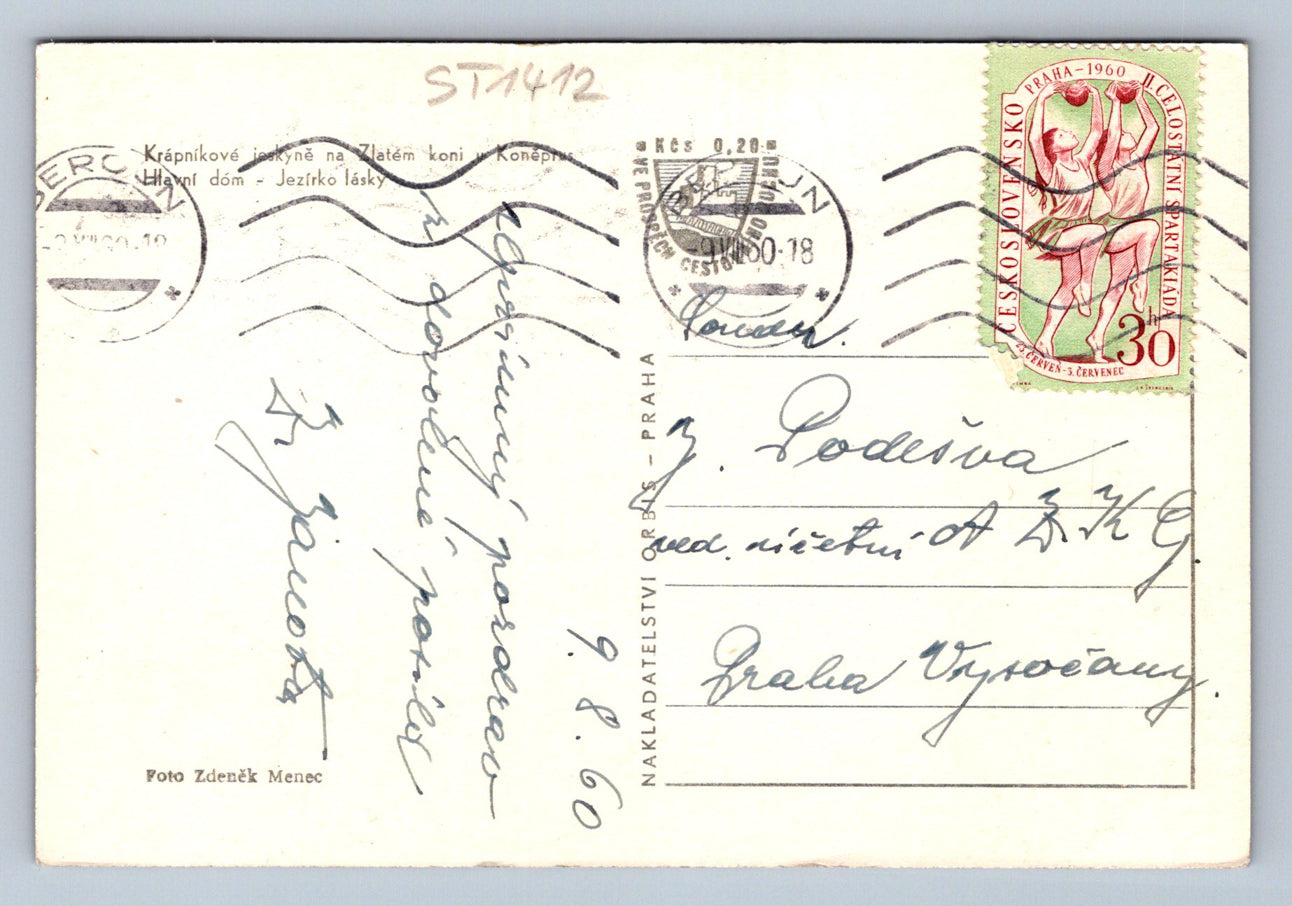 ST1412
Krápníkové jeskyně na Zlatém koni u Koněprus
Hlavní dóm - Jezírko lásky
BEROUN
60-18
Kčs 0,20
VE PROSPĚCH CESTOVNÍHO RUCHU
BEROUN
-9.VIII.60-18
PRAHA-1960
II. CELOSTÁTNÍ SPARTAKIÁDA
ČESKOSLOVENSKO
30h
23. ČERVEN-3. ČERVENEC
Upřímný pozdrav
z dovolené posílá
Z. Janota
9. 8. 60
NAKLADATELSTVÍ ORBIS - PRAHA
Soudr.
J. Podešva
ved. účetní
Praha Vysočany.
Foto Zdeněk Menec